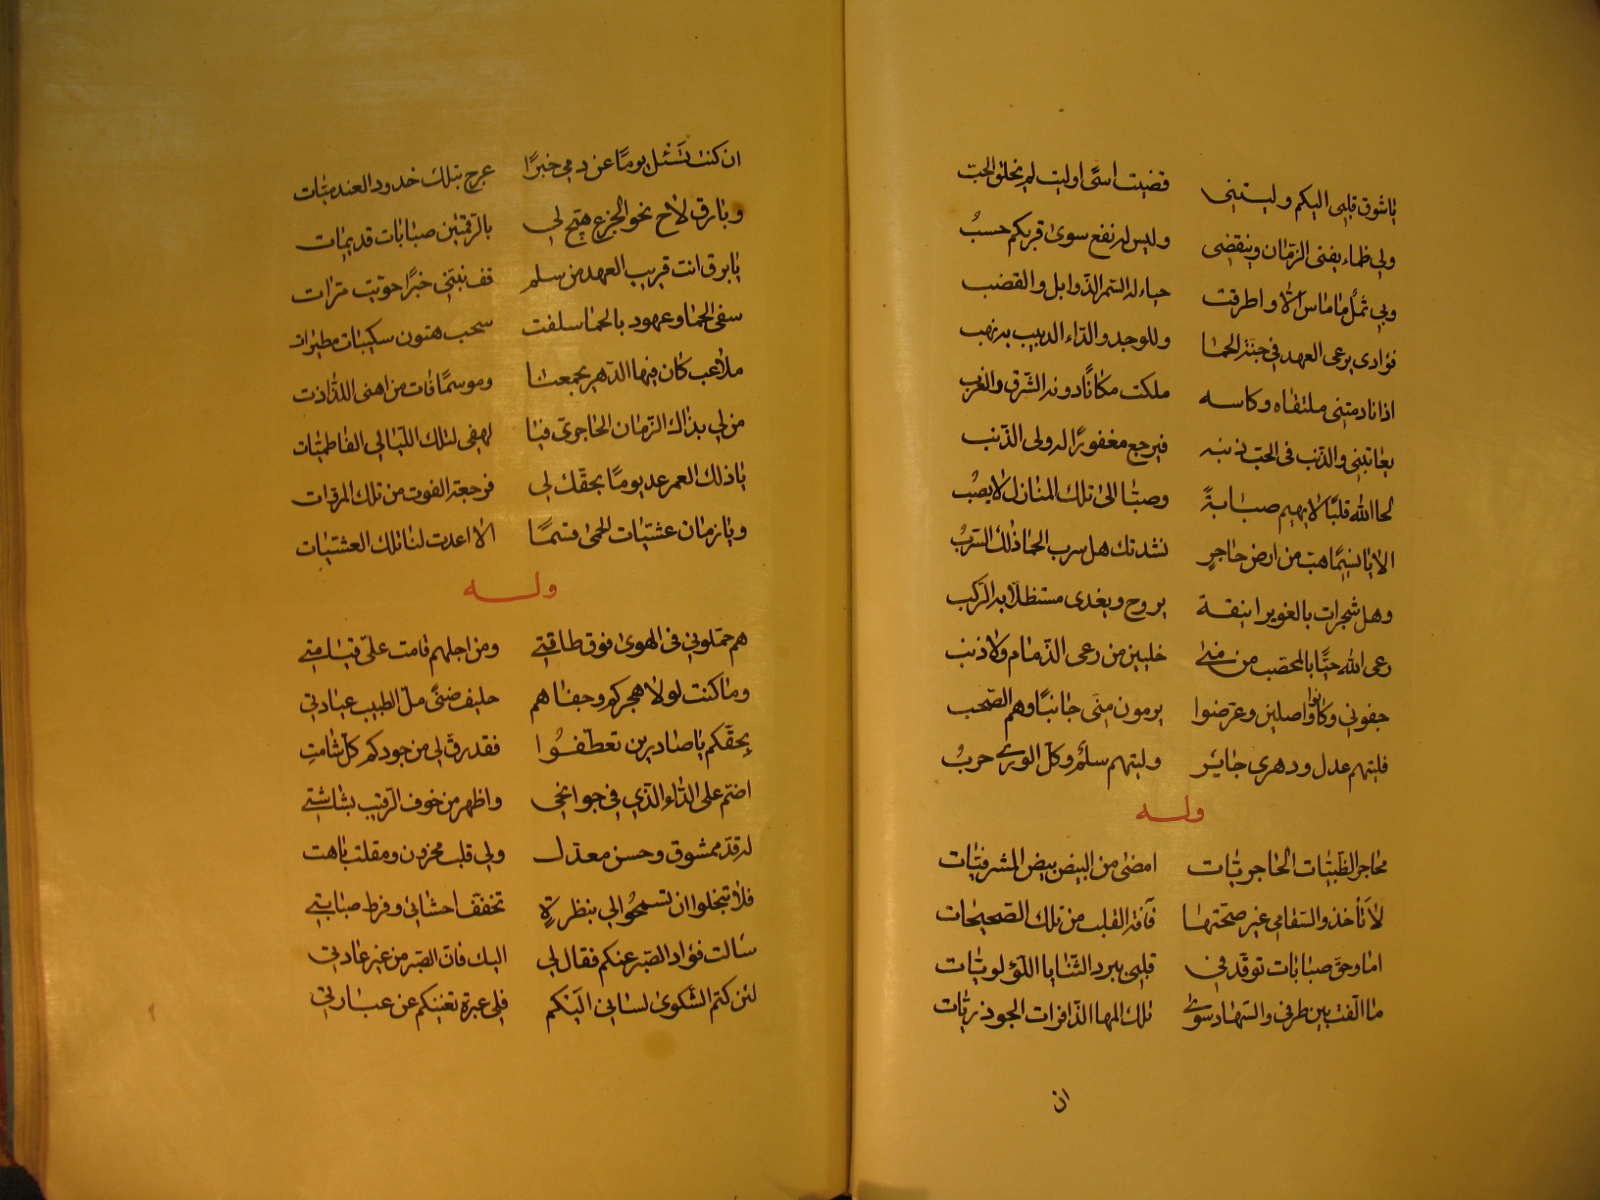 ياشوق قلبى اليكم وليتنى قضيت اسًى اوليت لم يخلق الحبّ
ولي ظماء يفنى الزمان وينقضى وليس له نفع سوى قربكم حسبُ
وبي ثملٌ ماماس الّا واطرقت حياء له السّمر الذّوابل والقضب
فؤادى يرعى العهد في جنّة الحما وللوجد والدّاء الدبيب به نهب
اذا نادمتنى ملتقاه وكاسه ملكت مكانًا دونه الشّرق والغرب
يعاتبنى والذّنب فى الحبّ ذنبه فيرجع مغفورًا له ولى الذّنب
لحا الله قلبًا لا يهيم صبابةً وصبّا الى تلك المنازل لا يصبُ
الا يا نسيمًا هبّ من ارض حاجرٍ نشدتك هل سرب الحما ذلك السّربُ
وهل شجرات بالغوير انيقة يروح ويغدى مستظلّا به الرّكب
رعى الله حيّا بالمحصّب من منى خليين من رعى الذّمام ولا ذنب
جفوني وكانوا واصلين وعرّضوا يرمون منّى جانبًا وهم الصّحب
فليتهم عدل ودهرى جاير وليتهم سلمٌ وكلّ الورى حربُ
وله
محاجر الظّبيات الحاجريّات امضى من البيض بيض المشرفيّات
لا تأخذ والسّقامي غير صحّتها فآفة القلب من تلك الصّحيحات
اما وحقّ صبابات توقّد في قلبى ببرد الثّنايا اللؤلويّات
ما الّفت بين طرفى والسّهاد سوى تلك المها النّافرات الجوذريّات
ان
ان كنت تسئل يومًا عن دمي خبرًا عرج بتلك خدود العندميّات
وبارق لاح نحو الجزع هيّج لي بالرّقمتين صبابات قديمات
يا برق انت قريب العهد من سلم قف نبّنى خبرًا حوّيت مرّات
سقى الحما وعهود بالحما سلفت سحب هتون سكيبات مطيرات
ملاعب كان فيها الدّهر يجمعنا وموسمًا فات من اهنى اللذاذت
من لي بذاك الزّمان الحاجرىّ فيا لهفى لتلك اللّيالي الفاطميّات
يا ذلك العمر عد يومًا بحقّك لي فرجعة الفوت من تلك المرّدات
ويا زمان عشيّات الحمى قسمًا الا اعدت لنا تلك العشيّات
وله
هم حمّلوني فى الهوى فوق طاقتى ومن اجلهم قامت علىّ قيامتى
وما كنت لولا هجركم وجفاهم حليف ضنًى ملّ الطبيب عيادتي
بحقّكم يا صادرين تعطّفوا فقد رقّ لي من جودكم كلّ شامتِ
اضمّ على الدّاء الذّي في جوانحي واظهر من خوف الرّقيب بشاشتى
له قدّ ممشوق وحسن معدّل ولي قلب محزون ومقلت باهت
فلا تبخلوا ان تسمحوا لي بنظرةٍ تخفّف احشائى وفرط صبابتى
سالت فؤاد الصّبر عنكم فقال لي اليك فانّ الصّبر من غير عادتي
لئن كتم الشّكوى لسانى اليكم فلى عبرة تغنيكم عن عبارتي